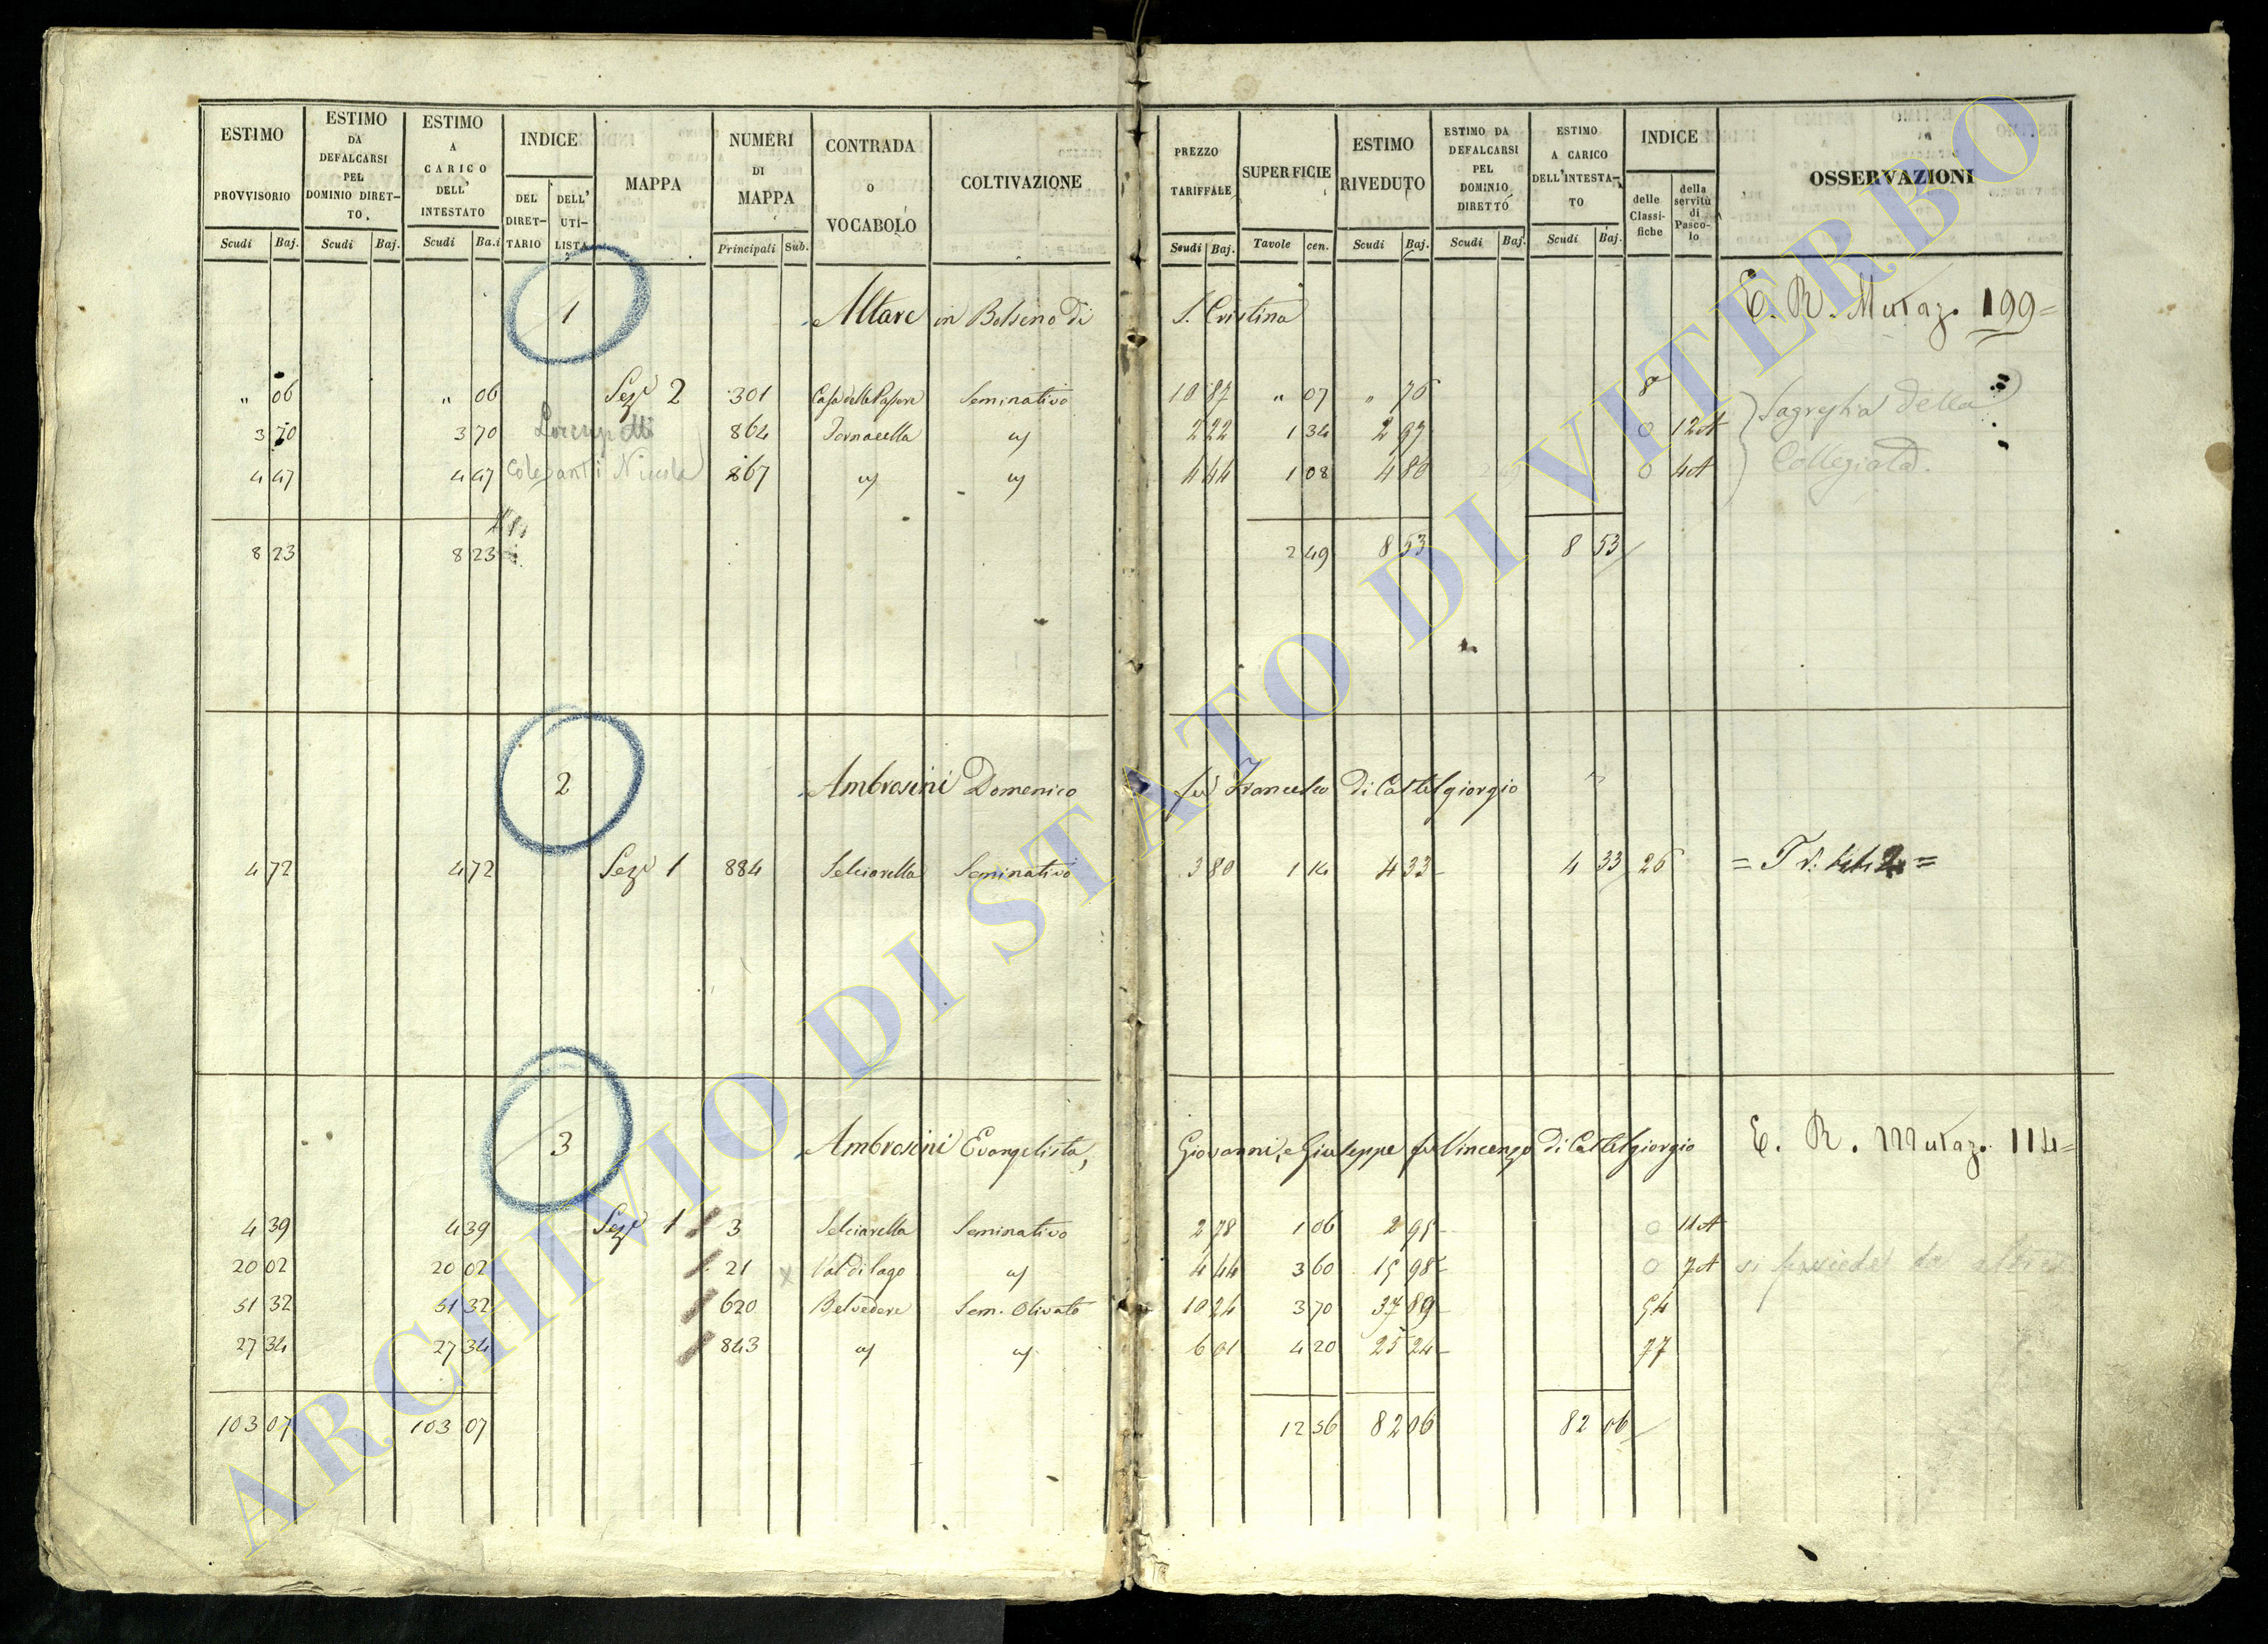 ESTIMO PROVVISORIO Scudi Baj.
ESTIMO DA DEFALCARSI PEL DOMINIO DIRETTO. Scudi Baj.
ESTIMO A CARICO DELL' INTESTATO Scudi Ba.i
INDICE DEL DIRETTARIO DELL' UTILISTA
MAPPA
NUMERI DI MAPPA Principali Sub.
CONTRADA o VOCABOLO
COLTIVAZIONE
PREZZO TARIFFALE Scudi Baj.
SUPERFICIE Tavole cen.
ESTIMO RIVEDUTO Scudi Baj.
ESTIMO DA DEFALCARSI PEL DOMINIO DIRETTO Scudi Baj.
ESTIMO A CARICO DELL'INTESTATO Scudi Baj.
INDICE delle Classifiche della servitù di Pascolo
OSSERVAZIONI
1 Altare in Bolseno di S. Cristina E. R. Mutaz. 199=
" 06 " 06 Sez. 2 301 Seminativo 10 87 " 07 " 76 8 Sagrestia della
3 70 3 70 864 Fornacella " 2 22 1 34 2 97 0 12 A
4 47 4 47 Nicola 867 " " 4 44 1 08 4 80 0 4 A Collegiata.
8 23 8 23 2 49 8 53 8 53
2 Ambrosini Domenico fu Francesco di Castelgiorgio
4 72 4 72 Sez. 1 884 Selciarella Seminativo 3 80 1 14 4 33 4 33 26
3 Ambrosini Evangelista, Giovanni, e Giuseppe fu Vincenzo di Castelgiorgio E. R. Mutaz. 114=
4 39 4 39 Sez. 1 3 Selciarella Seminativo 2 78 1 06 2 95 0 11 A
20 02 20 02 21 x Val di lago " 4 44 3 60 15 98 0 7 A
51 32 51 32 620 Belvedere Sem. Olivato 10 24 3 70 37 89 54
27 34 27 34 843 " " 6 01 4 20 25 24 77
103 07 103 07 12 56 82 06 82 06
ARCHIVIO DI STATO DI VITERBO